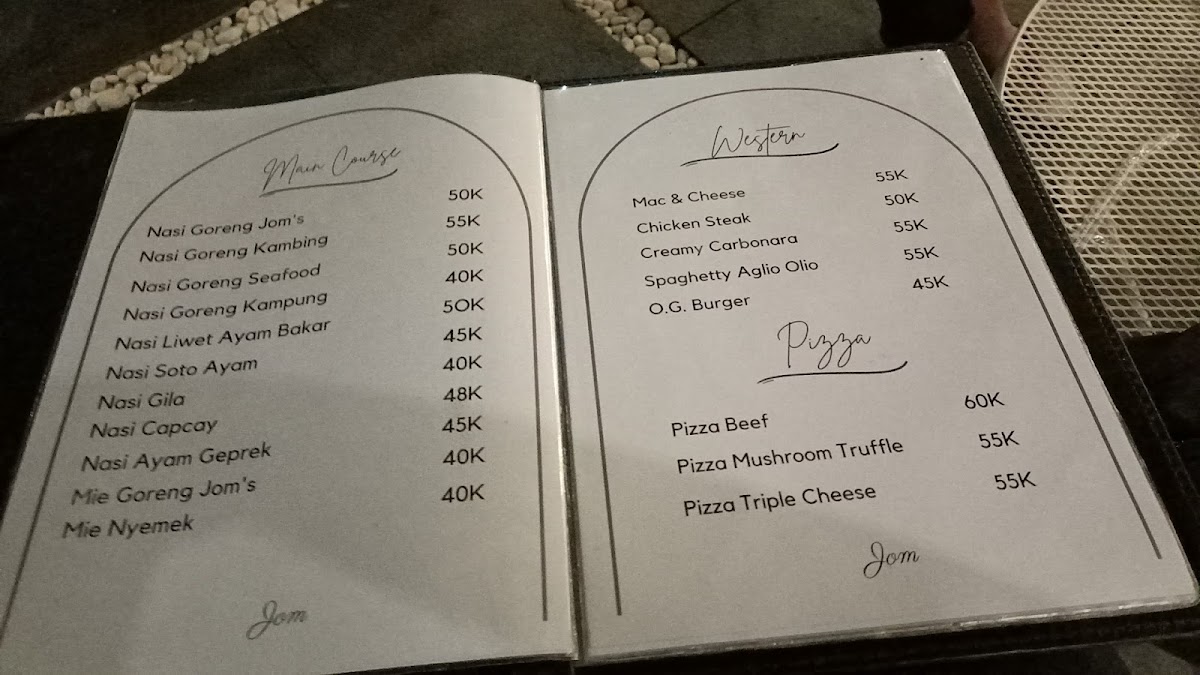 Main Course
Nasi Goreng Jom's 50K
Nasi Goreng Kambing 55K
Nasi Goreng Seafood 50K
Nasi Goreng Kampung 40K
Nasi Liwet Ayam Bakar 50K
Nasi Soto Ayam 45K
Nasi Gila 40K
Nasi Capcay 48K
Nasi Ayam Geprek 45K
Mie Goreng Jom's 40K
Mie Nyemek 40K
Jom
Western
Mac & Cheese 55K
Chicken Steak 50K
Creamy Carbonara 55K
Spaghetty Aglio Olio 55K
O.G. Burger 45K
Pizza
Pizza Beef 60K
Pizza Mushroom Truffle 55K
Pizza Triple Cheese 55K
Jom